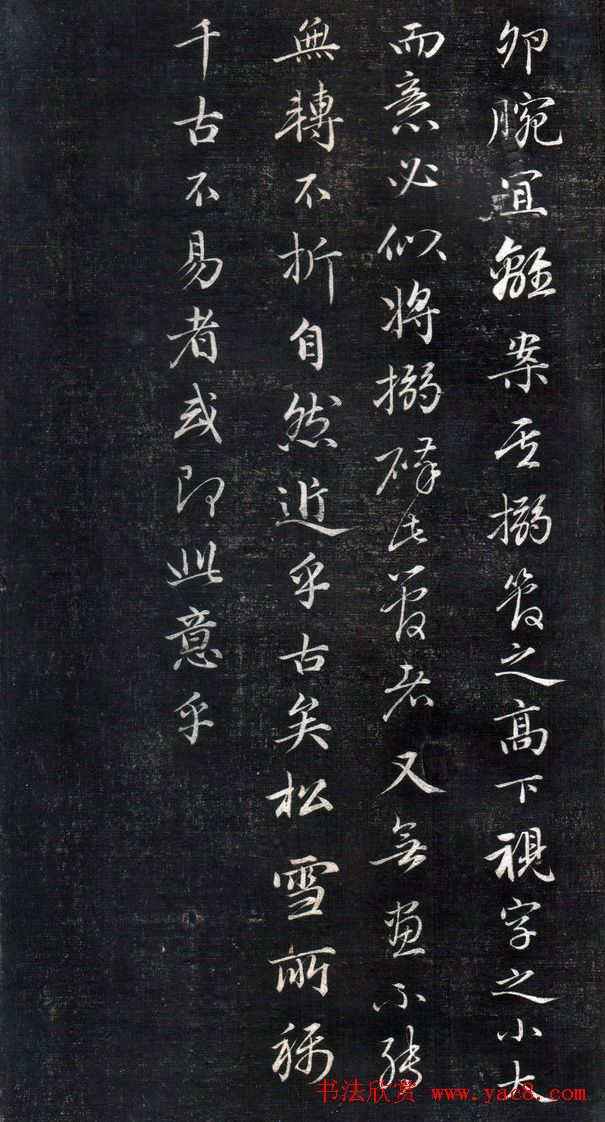 腕宜離案其搦管之高下視字之小大
而意必似將搦碎此管者又無畫不轉
無轉不折自然近乎古矣松雪所稱
千古不易者或即此意乎
书法欣赏 www.yac8.com